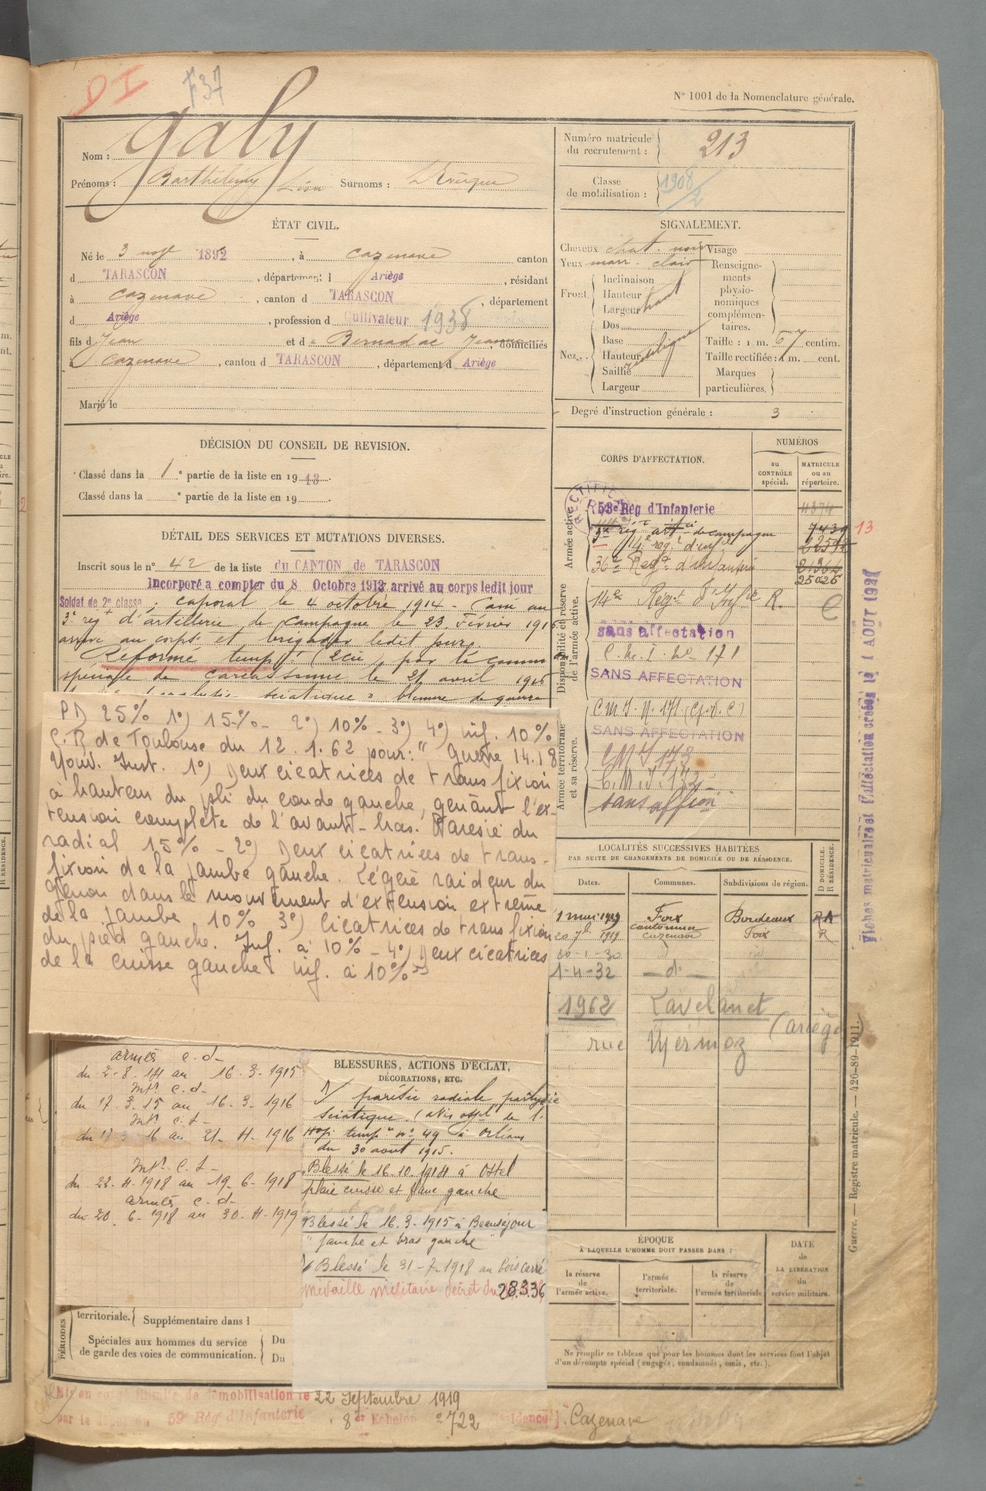 N° 1001 de la Nomenclature générale.
Nom : Galy
Prénoms : Barthélemy Léon Surnoms :
Numéro matricule du recrutement : 213
Classe de mobilisation : 1908/2
ÉTAT CIVIL.
Né le 3 1892, à Cazenave canton
d TARASCON, département d Ariège, résidant
à Cazenave, canton d TARASCON, département
d Ariège, profession d Cultivateur 1938
fils d Jean et d e Bernadac Jeanne, domiciliés
à Cazenave, canton d TARASCON, département d Ariège
Marié le
DÉCISION DU CONSEIL DE REVISION.
Classé dans la 1e partie de la liste en 1913
Classé dans la e partie de la liste en 19
DÉTAIL DES SERVICES ET MUTATIONS DIVERSES.
Inscrit sous le n° 42 de la liste du CANTON de TARASCON
Incorporé a compter du 8 Octobre 1913 arrivé au corps ledit jour
Soldat de 2e classe ; caporal le 4 octobre 1914
3e régt d'artillerie de Campagne le 23 Février 1916
arrivé au corps et brigadier ledit jour.
Réformé temp. par la comm
spéciale de Carcassonne le 21 avril
PD 25% 1°) 15% - 2°) 10% - 3°) 4°) inf. 10%
C.R de Toulouse du 12.1.62 pour : "Guerre 14.18
1°) Deux cicatrices de transfixion
à hauteur du pli du coude gauche, gênant l'ex-
tension complète de l'avant-bras. Parésie du
radial 15% - 2°) Deux cicatrices de trans-
fixion de la jambe gauche. Légère raideur du
genou dans le mouvement d'extension extrême
de la jambe 10% 3°) Cicatrices de transfixion
du pied gauche. Inf. à 10% - 4°) Deux cicatrices
de la cuisse gauche inf. à 10%
armées c.d-
du 2-8-14 au 16-3-1915
Intr. c.d-
du 17.3.15 au 16-3-1916
Intr. c.s-
du 17-3-16 au 21-4-1916
Intr. c.s-
du 22-4-1918 au 19-6-1918
armées c.d-
du 20-6-1918 au 30-4-1919
BLESSURES, ACTIONS D'ÉCLAT, DÉCORATIONS, ETC.
parésie radiale paralysie
sciatique. de l'
Hôp. temp. n° 49 à Orléans
du 30 août 1915.
Blessé le 16.10.1914 à Ostel
plaie cuisse et flanc gauche
Blessé le 16.3.1915 à Beauséjour
"jambe et bras gauche"
Blessé le 31-7-1918 au bois carré
Médaille militaire décret du 28336
PÉRIODES
territoriale. Supplémentaire dans l
Spéciales aux hommes du service de garde des voies de communication. Du
Du
Mis en congé illimité de démobilisation le 22 Septembre 1919
par le dépôt du 59e Rég d'Infanterie 8e Échelon n° 2722 Cazenave
SIGNALEMENT.
Cheveux chat. noir
Yeux marr. clair
Front. Inclinaison
Hauteur
Largeur
Nez. Dos
Base
Hauteur
Saillie
Largeur
Visage
Renseignements physionomiques complémentaires.
Taille : 1 m. 67 centim.
Taille rectifiée : 1 m. cent.
Marques particulières.
Degré d'instruction générale : 3
CORPS D'AFFECTATION.
NUMÉROS
au CONTRÔLE spécial.
MATRICULE ou au répertoire.
Armée active.
53e Rég d'Infanterie
3e régt artie de campagne 7439 13
14e régt d'inf
36e Regt d'infanterie
25025
Disponibilité et réserve de l'armée active.
14e Regt d'Infie R.
sans affectation
C.M.I. No 171
SANS AFFECTATION
Armée territoriale et sa réserve.
C M I N. 171
SANS AFFECTATION
C M I 173
C.M.I. 173
sans affon
LOCALITÉS SUCCESSIVES HABITÉES
PAR SUITE DE CHANGEMENTS DE DOMICILE OU DE RÉSIDENCE.
Dates. Communes. Subdivisions de région. D DOMICILE. R RÉSIDENCE.
1 mai 1919 Foix Bordeaux
1919 Cazenave Foix R
20-1-30
1-4-32 d°
1962 Lavelanet (ariège)
rue Mermoz
ÉPOQUE À LAQUELLE L'HOMME DOIT PASSER DANS :
la réserve de l'armée active.
l'armée territoriale.
la réserve de l'armée territoriale.
DATE de LA LIBÉRATION du service militaire.
Ne remplir ce tableau que pour les hommes dont les services font l'objet d'un décompte spécial (engagés, condamnés, omis, etc.).
Guerre. — Registre matricule. — 426-89-1911.